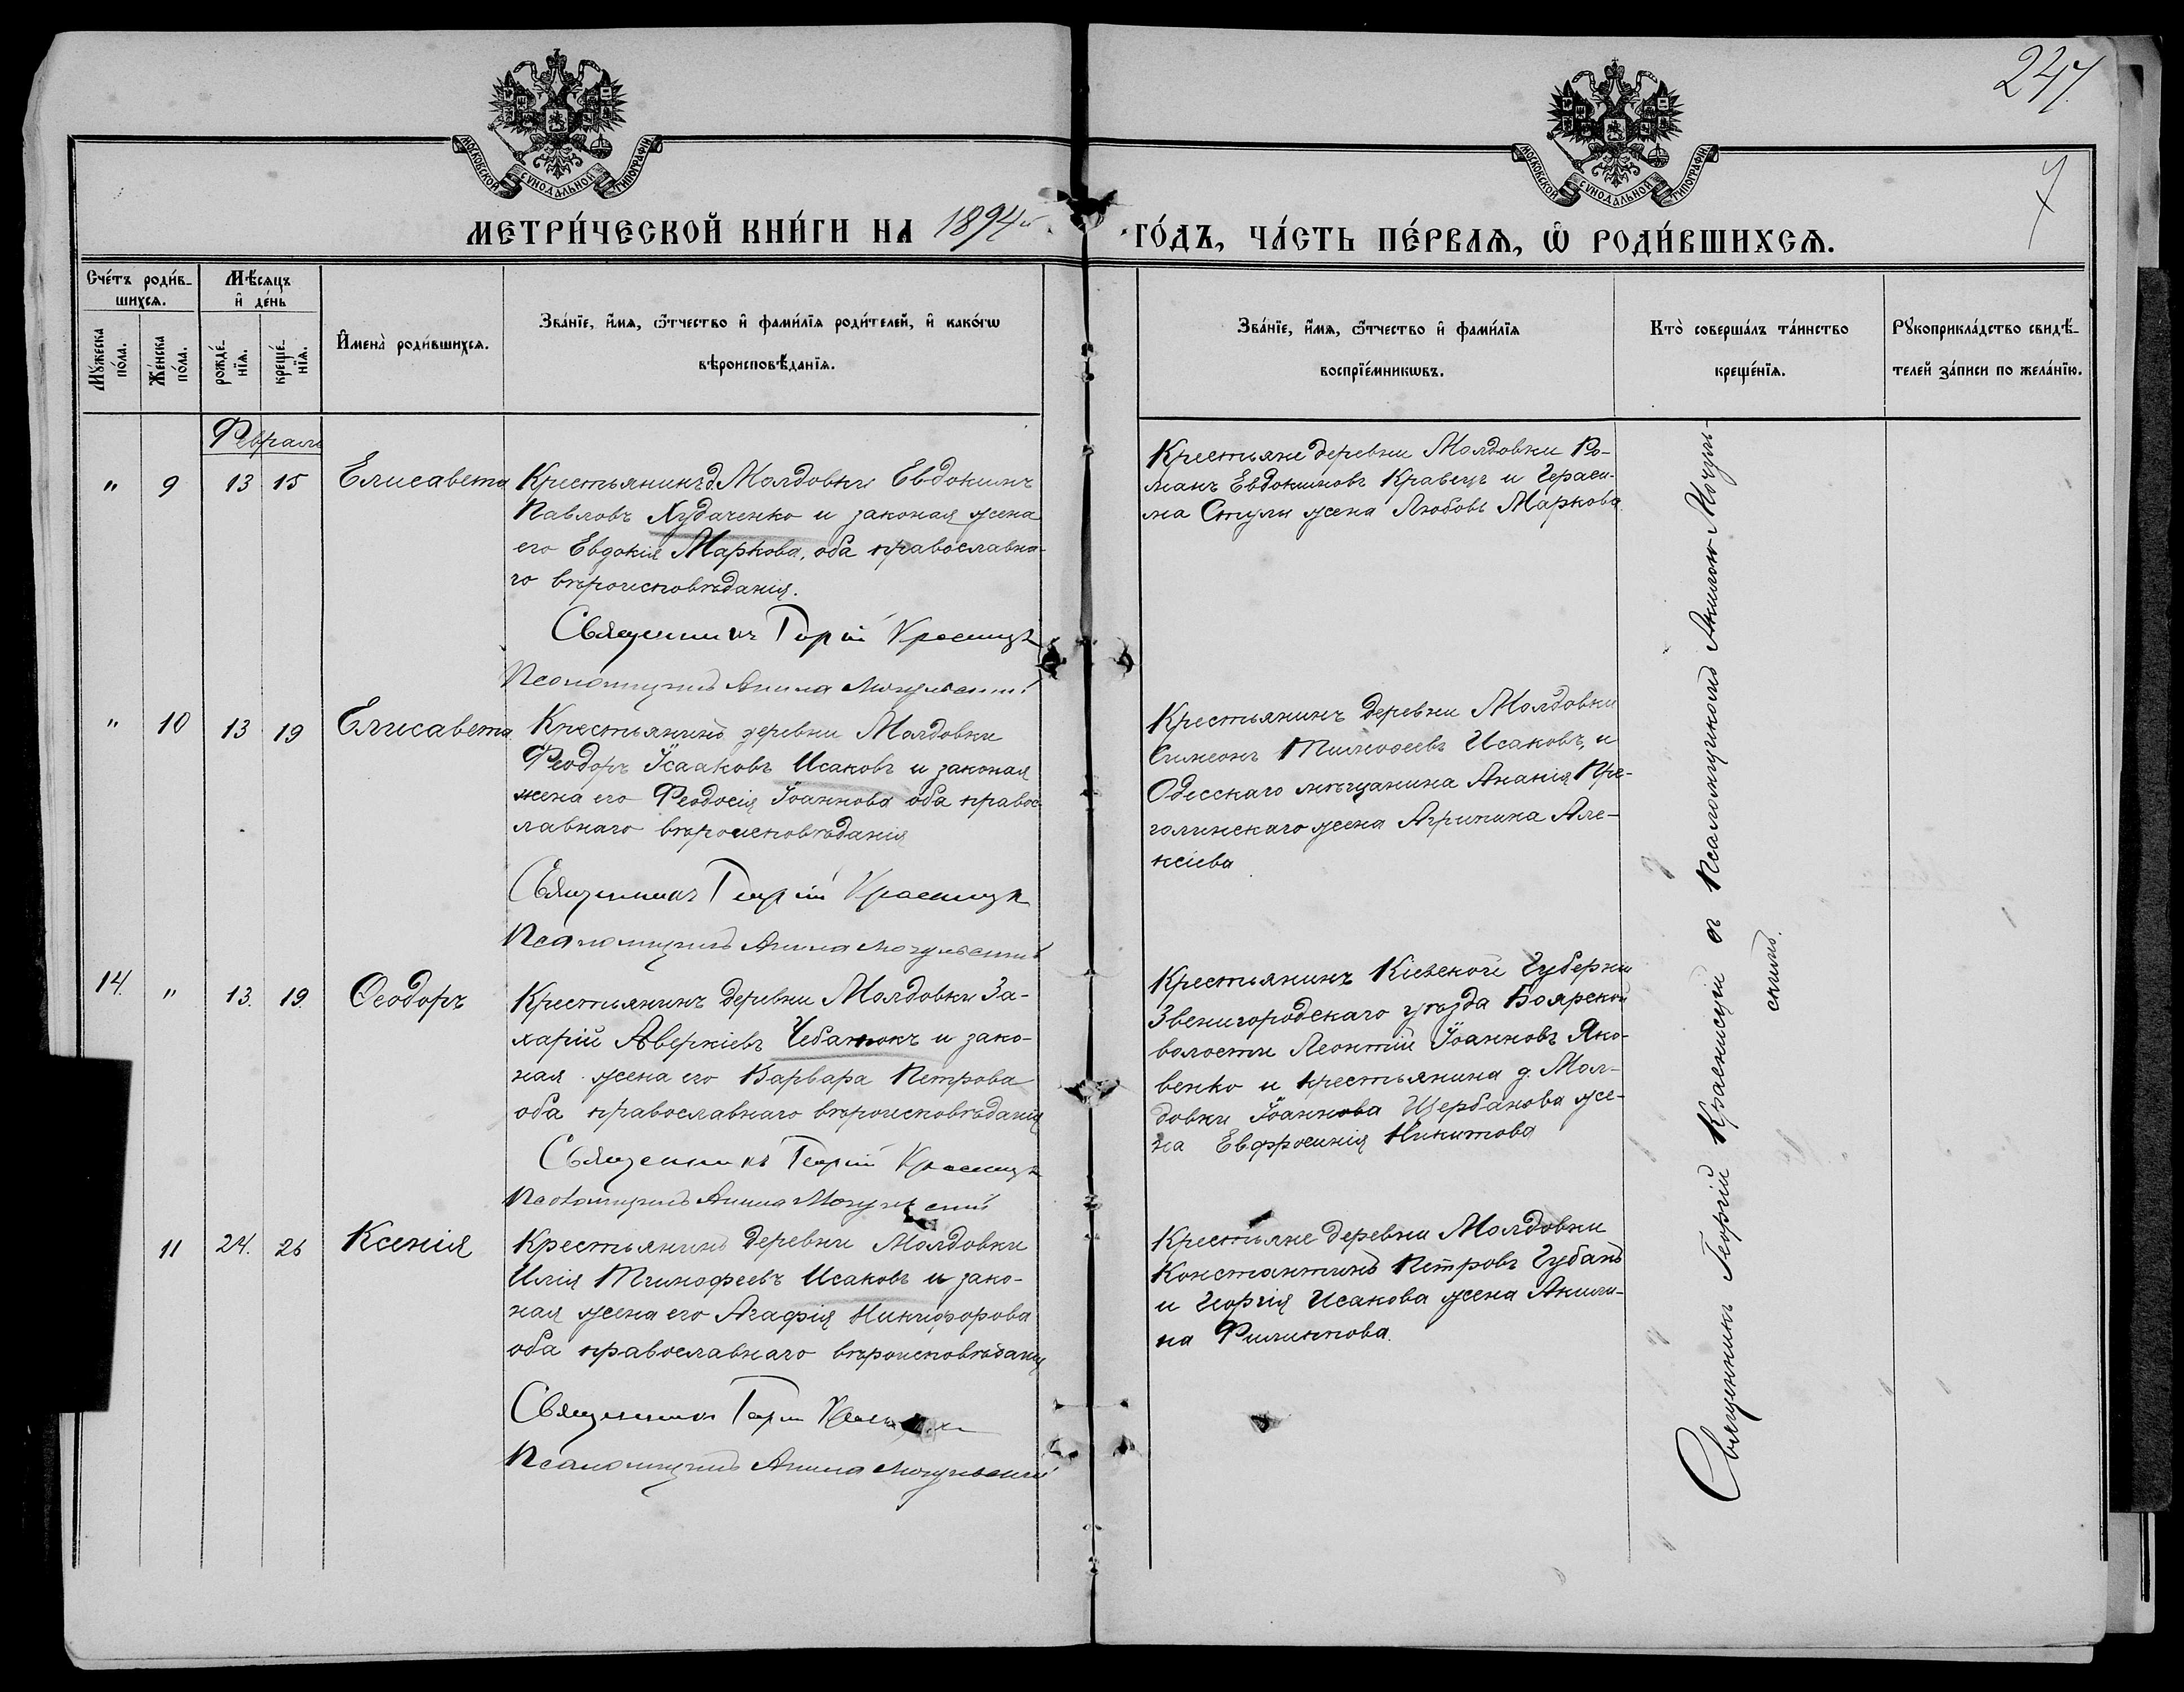 247
7
МОСКОВСКОЙ СѴНОДАЛЬНОЙ ТИПОГРАФІИ
МОСКОВСКОЙ СѴНОДАЛЬНОЙ ТИПОГРАФІИ
МЕТРИ́ЧЕСКОЙ КНИ́ГИ НА 1894й
ГО́ДЪ, ЧА́СТЬ ПЕ́РВАѦ, Ѡ РОДИ́ВШИХСѦ.
Сче́тъ роди́в-
шихсѧ.
Мꙋ́жеска по́ла.
Же́нска по́ла.
Мѣ́сѧцъ
и҆ де́нь
рожде́-
нїѧ.
креще́-
нїѧ.
И҆мена̀ роди́вшихсѧ.
Зва́нїе, и҆́мѧ, ѻ҆́тчество и҆ фами́лїѧ роди́телей, и҆ како́гѡ
вѣроисповѣ́данїѧ.
Зва́нїе, и҆́мѧ, ѻ҆́тчество и҆ фами́лїѧ
воспрїе́мникѡвъ.
Кто̀ соверша́лъ та́инство
креще́нїѧ.
Рꙋкоприкла́дство свидѣ́-
телей за́писи по жела́нїю.
Февраль
" 9 13 15 Елисавета
Крестьянинъ д. Молдовки Евдокимъ
Павловъ Худаченко и законая жена
его Евдокія Маркова, оба православна-
го вѣроисповѣданія.
Священникъ Георгій
Псаломщикъ Акила Могульскій
Крестьяне деревни Молдовки Ро-
манъ Евдокимовъ Кравецъ и Гераси-
ма Стули жена Любовь Маркова
" 10 13 19 Елисавета
Крестьянинъ деревни Молдовки
Феодоръ Ісааковъ Исаковъ и законая
жена его Феодосія Іоаннова оба правос-
лавнаго вѣроисповѣданія
Священникъ Георгій
Псаломщикъ Акила Могульскій
Крестьянинъ деревни Молдовки
Симеонъ Тимофеевъ Исаковъ, и
Одесскаго мѣщанина Ананія Пре-
голинскаго жена Агрипина Але-
ксіева
14. " 13. 19. Ѳеодоръ
Крестьянинъ деревни Молдовки За-
харій Аверкіевъ Чебанюкъ и зако-
ная жена его Варвара Петрова
оба православнаго вѣроисповѣданія
Священникъ Георгій
Псаломщикъ Акила Могульскій
Крестьянинъ Кіевской Губерніи
Звенигородскаго уѣзда Боярской
волости Леонтій Іоанновъ Яко-
венко и крестьянина д. Мол-
довки Іоаннова Щербакова же-
на Евфросинія Никитова
11 24. 26 Ксенія
Крестьянинъ деревни Молдовки
Илія Тимофеевъ Исаковъ и зако-
ная жена его Агафія Никифорова
оба православнаго вѣроисповѣданія
Священникъ Георгій
Псаломщикъ Акила Могульскій
Крестьяне деревни Молдовки
Константинъ Петровъ Губанъ
и Георгія Исакова жена Акили-
на Филиппова.
Священникъ Георгій Красницкій съ Псаломщикомъ Акилою Могуль-
скимъ.